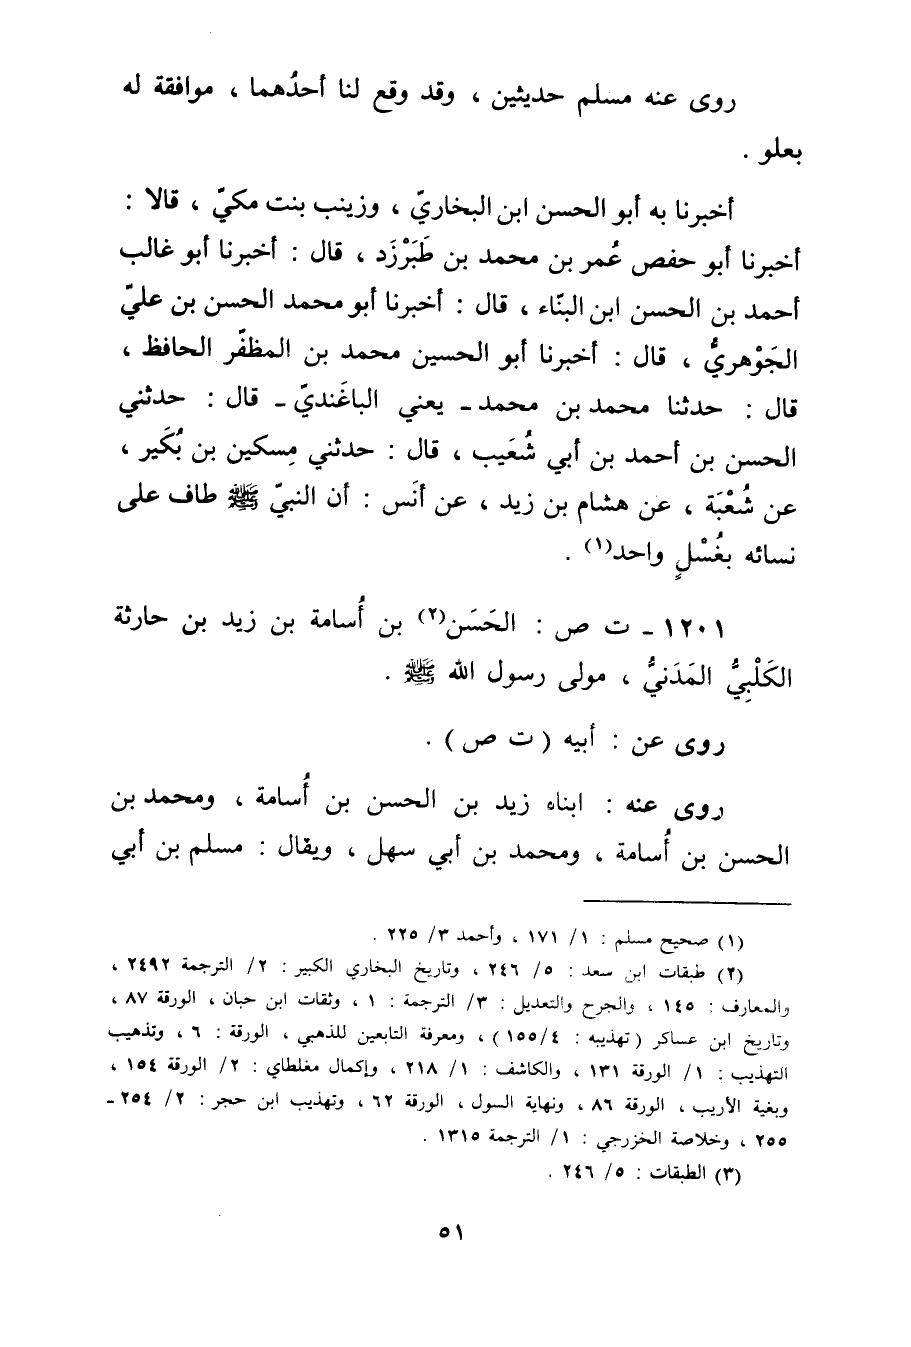 روى عنه مسلم حديثين ، وقد وقع لنا أحدُهما ، موافقة له
بعلو .
أخبرنا به أبو الحسن ابن البخاريّ ، وزينب بنت مكيّ ، قالا :
أخبرنا أبو حفص عُمر بن محمد بن طَبَرْزَد ، قال : أخبرنا أبو غالب
أحمد بن الحسن ابن البنّاء ، قال : أخبرنا أبو محمد الحسن بن عليّ
الجَوْهريُّ ، قال : أخبرنا أبو الحسين محمد بن المظفّر الحافظ ،
قال : حدثنا محمد بن محمد - يعني الباغَنديّ - قال : حدثني
الحسن بن أحمد بن أبي شُعَيب ، قال : حدثني مِسكين بن بُكَير ،
عن شُعْبَة ، عن هشام بن زيد ، عن أنَس : أن النبيّ ﷺ طاف على
نسائه بغُسْلٍ واحد(١) .
١٢٠١ - ت ص : الحَسَن(٢) بن أُسامة بن زيد بن حارثة
الكَلْبِيُّ المَدَنيُّ ، مولى رسول الله ﷺ .
روى عن : أبيه ( ت ص ) .
روى عنه : ابناه زيد بن الحسن بن أُسامة ، ومحمد بن
الحسن بن أُسامة ، ومحمد بن أبي سهل ، ويقال : مسلم بن أبي
(١) صحيح مسلم : ١/ ١٧١ ، وأحمد ٣/ ٢٢٥ .
(٢) طبقات ابن سعد : ٥/ ٢٤٦ ، وتاريخ البخاري الكبير : ٢/ الترجمة ٢٤٩٢ ،
والمعارف : ١٤٥ ، والجرح والتعديل : ٣/ الترجمة : ١ ، وثقات ابن حبان ، الورقة ٨٧ ،
وتاريخ ابن عساكر ( تهذيبه : ١٥٥/٤ ) ، ومعرفة التابعين للذهبي ، الورقة : ٦ ، وتذهيب
التهذيب : ١/ الورقة ١٣١ ، والكاشف : ١/ ٢١٨ ، وإكمال مغلطاي : ٢/ الورقة ١٥٤ ،
وبغية الأريب ، الورقة ٨٦ ، ونهاية السول ، الورقة ٦٢ ، وتهذيب ابن حجر : ٢/ ٢٥٤ -
٢٥٥ ، وخلاصة الخزرجي : ١/ الترجمة ١٣١٥ .
(٣) الطبقات : ٥/ ٢٤٦ .
٥١